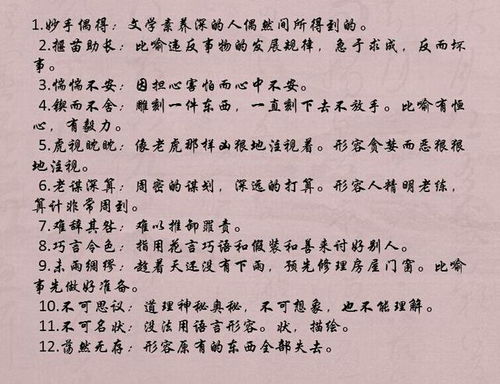 1.妙手偶得：文学素养深的人偶然间所得到的。
2.揠苗助长：比喻违反事物的发展规律，急于求成，反而坏
事。
3.惴惴不安：因担心害怕而心中不安。
4.锲而不舍：雕刻一件东西，一直刻下去不放手。比喻有恒
心，有毅力。
5.虎视眈眈：像老虎那样凶狠地注视着。形容贪婪而恶狠狠
地注视。
6.老谋深算：周密的谋划，深远的打算。形容人精明老练，
算计非常周到。
7.难辞其咎：难以推卸罪责。
8.巧言令色：指用花言巧语和假装和善来讨好别人。
9.未雨绸缪：趁着天还没有下雨，预先修理房屋门窗。比喻
事先做好准备。
10.不可思议：道理神秘奥秘，不可想象，也不能理解。
11.不可名状：没法用语言形容。状，描绘。
12.荡然无存：形容原有的东西全部失去。